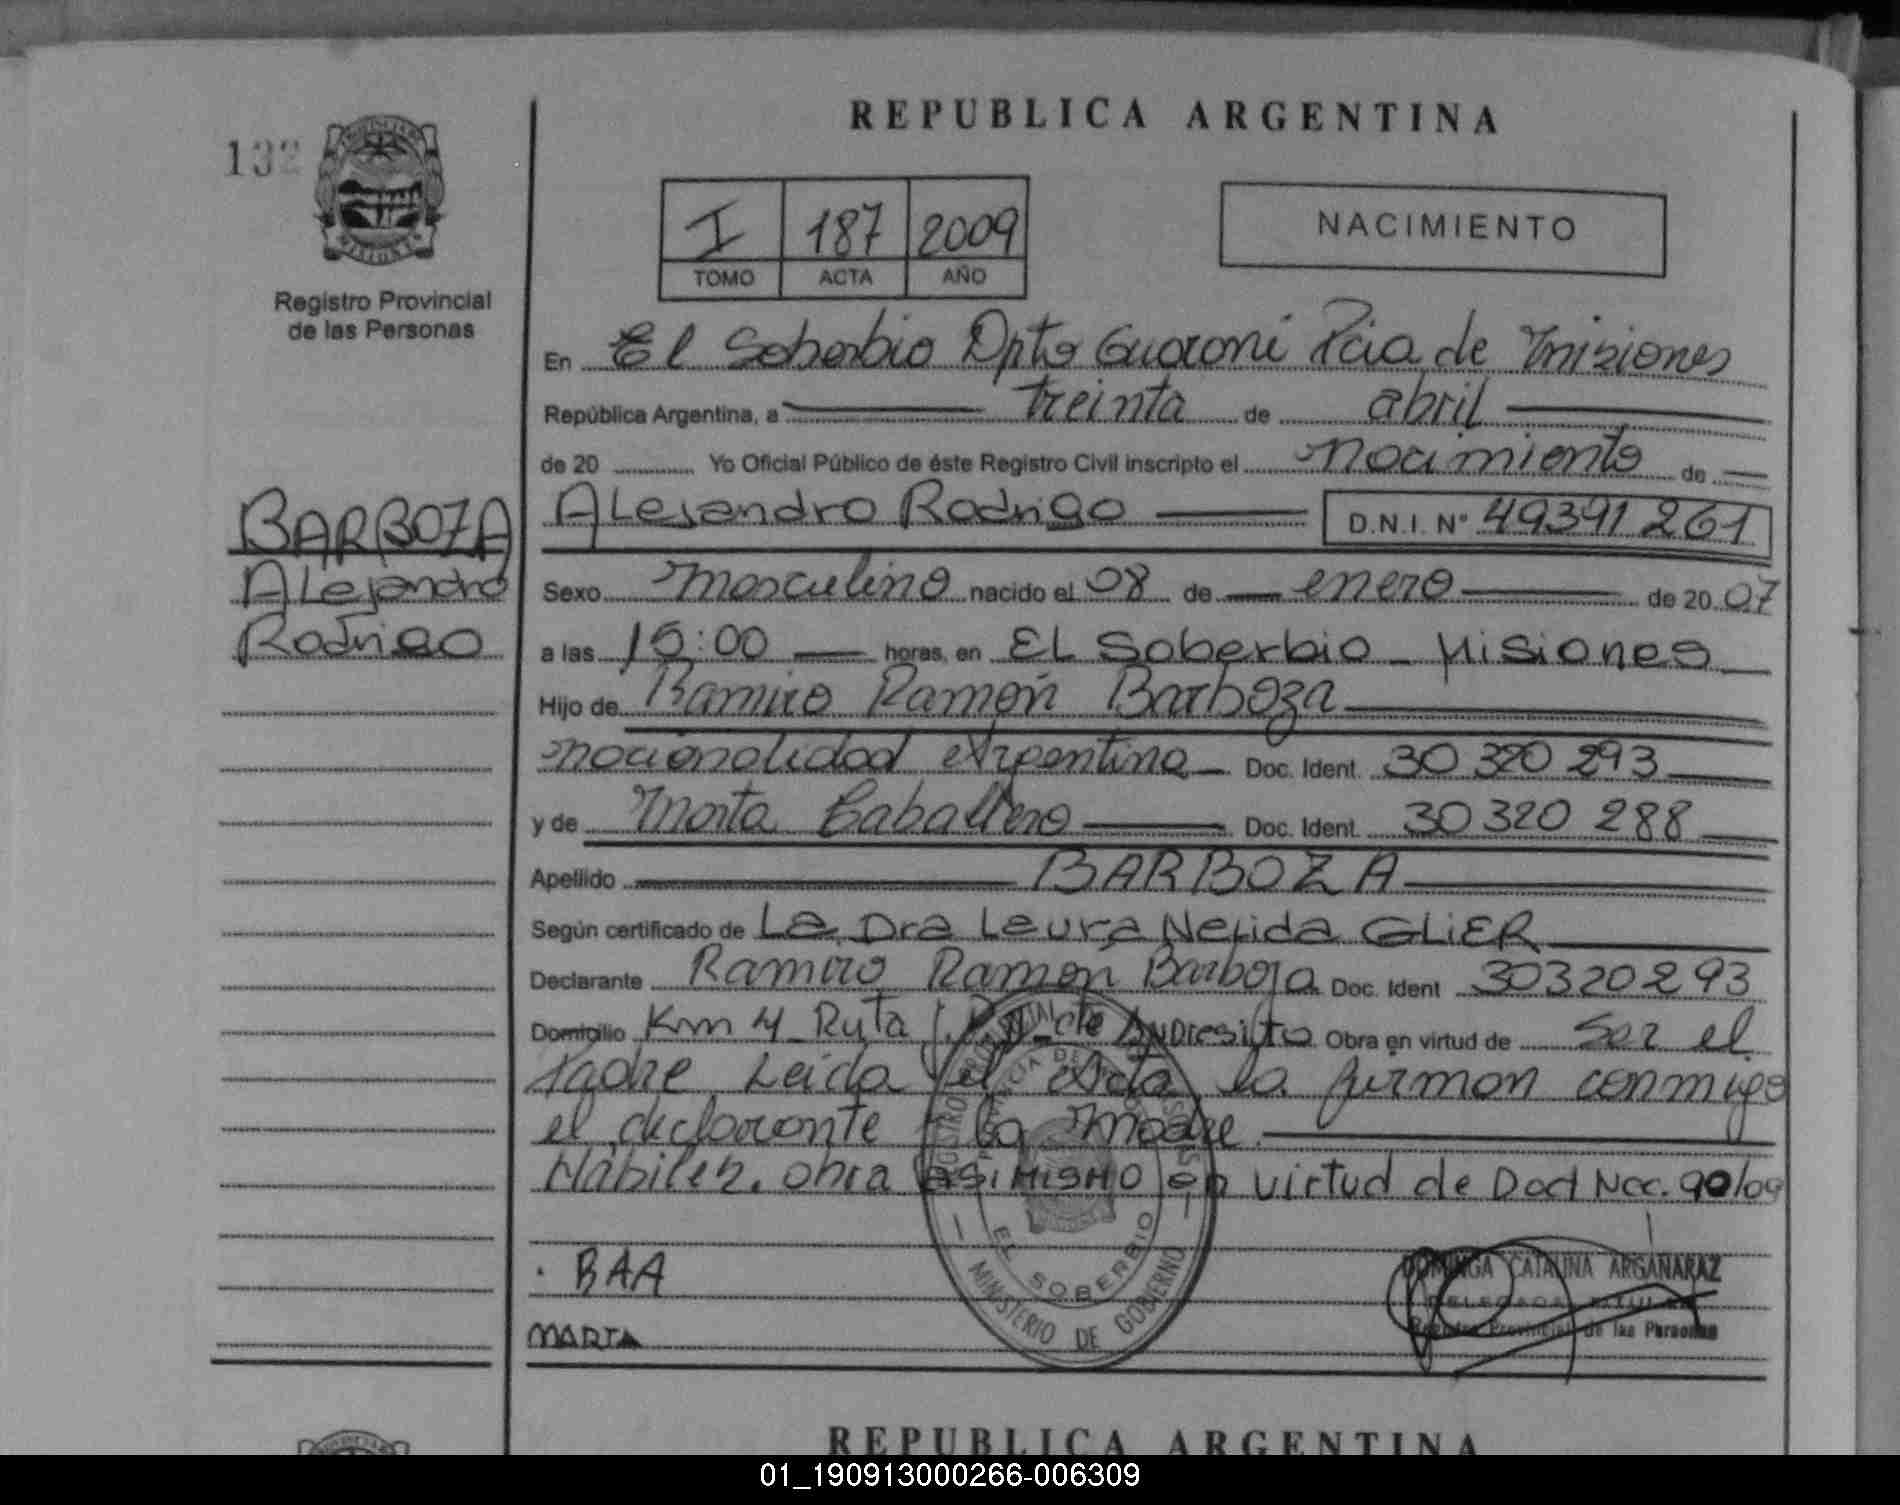 REPUBLICA ARGENTINA
132
I 187 2009
TOMO ACTA AÑO
NACIMIENTO
Registro Provincial
de las Personas
En El Soberbio Dpto Guaraní Pcia de Misiones
República Argentina, a treinta de abril
de 20 Yo Oficial Público de éste Registro Civil inscripto el nacimiento de
BARBOZA
Alejandro
Rodrigo
Alejandro Rodrigo D.N.I. Nº 49391261
Sexo masculino nacido el 08 de enero de 2007
a las 15:00 horas, en El Soberbio - Misiones
Hijo de Ramiro Ramón Barboza
nacionalidad Argentina Doc. Ident. 30 320 293
y de Marta Caballero Doc. Ident. 30 320 288
Apellido BARBOZA
Según certificado de La Dra Laura Nelida GLIER
Declarante Ramiro Ramón Barboza Doc. Ident 30320293
Domicilio Km 4 Ruta cte Andresito Obra en virtud de Ser el
Padre Leida el Acta la firman conmigo
el declarante la Madre.
Hábiles. obra ASIMISMO en virtud de Dad Nac. 90/09
PROVINCIA DE MISIONES
EL SOBERBIO
MINISTERIO DE GOBIERNO
BAA
MARTA
DOMINGA CATALINA ARGAÑARAZ
DELEGADA TITULAR
Registro Provincial de las Personas
REPUBLICA ARGENTINA
01_190913000266-006309